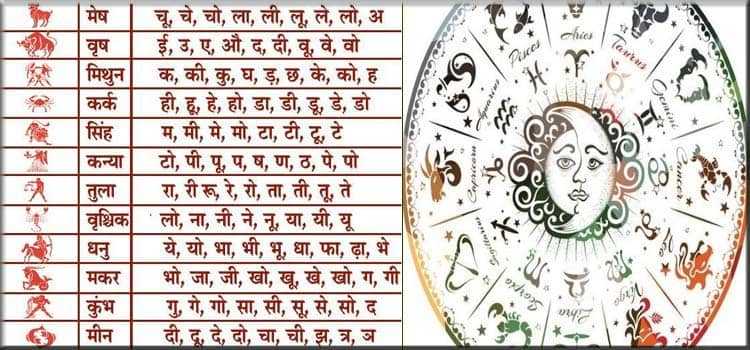 मेष चू, चे, चो, ला, ली, लू, ले, लो, अ
वृष ई, उ, ए, औ, द, दी, वू, वे, वो
मिथुन क, की, कु, घ, ड़, छ, के, को, ह
कर्क ही, हू, हे, हो, डा, डी, डू, डे, डो
सिंह म, मी, मे, मो, टा, टी, टू, टे
कन्या टो, पी, पू, प, ष, ण, ठ, पे, पो
तुला रा, री रू, रे, रो, ता, ती, तू, ते
वृश्चिक लो, ना, नी, ने, नू, या, यी, यू
धनु ये, यो, भा, भी, भू, धा, फा, ढ़ा, भे
मकर भो, जा, जी, खो, खू, खे, खो, ग, गी
कुंभ गु, गे, गो, सा, सी, सू, से, सो, द
मीन दी, दू, दे, दो, चा, ची, झ, त्र, ञ
Aries
Taurus
Gemini
Cancer
Virgo
Libra
Scorpio
Sagittarius
Capricorn
Aquarius
Pisces